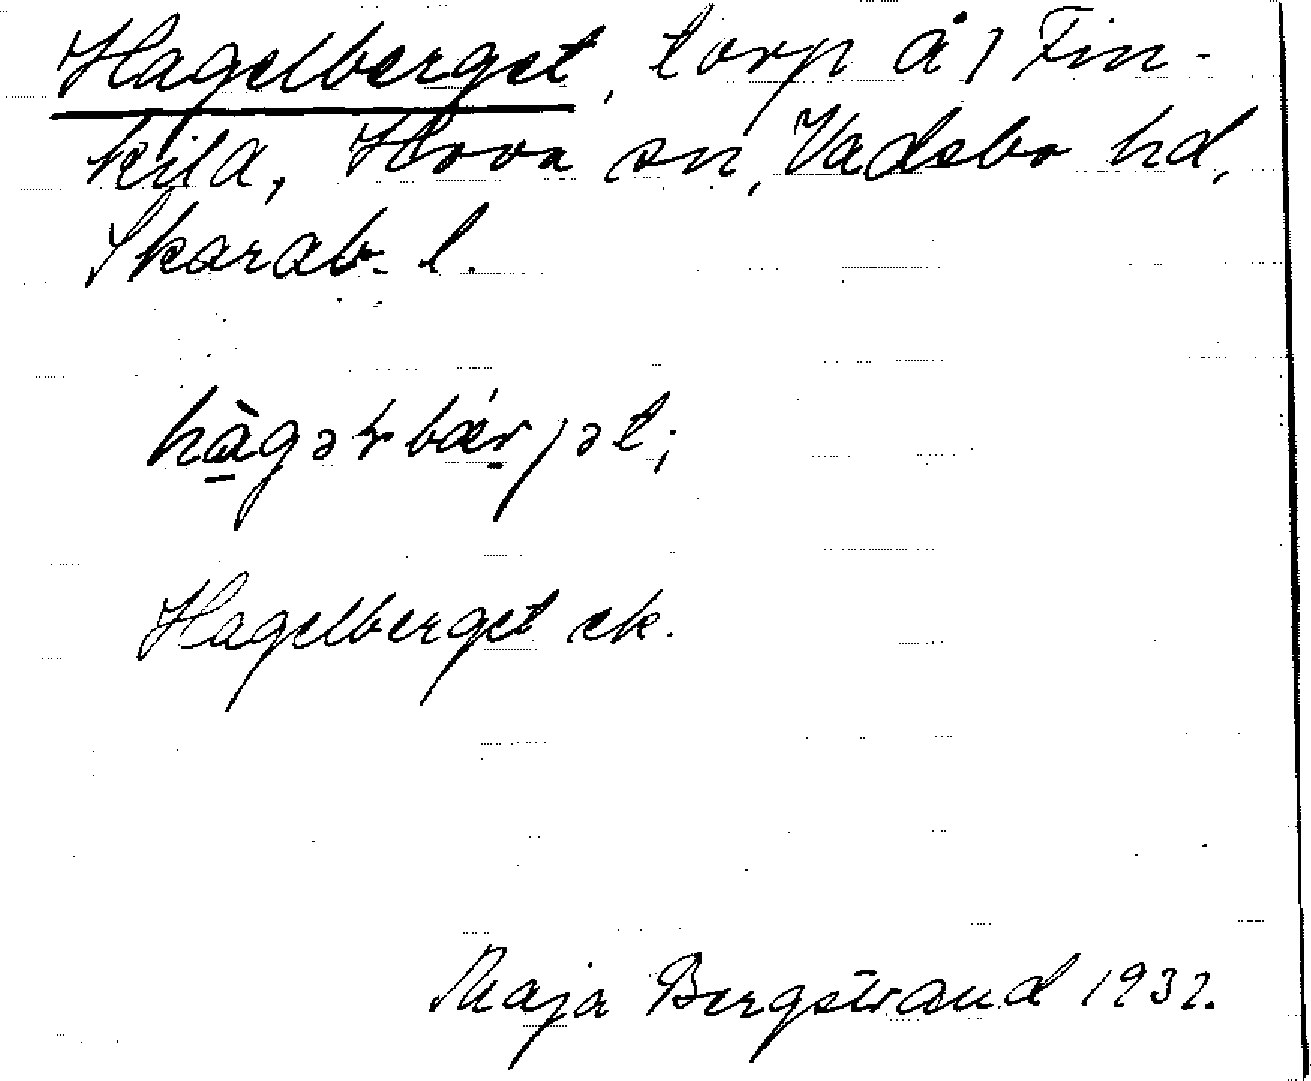 Hagelberget, torp å 1 Fin-
kila, Hova sn, Vadsbo hd,
Skarab. l.
hàgəɫbǽrjət;
Hagelberget ek.
Maja Bergstrand 1932.